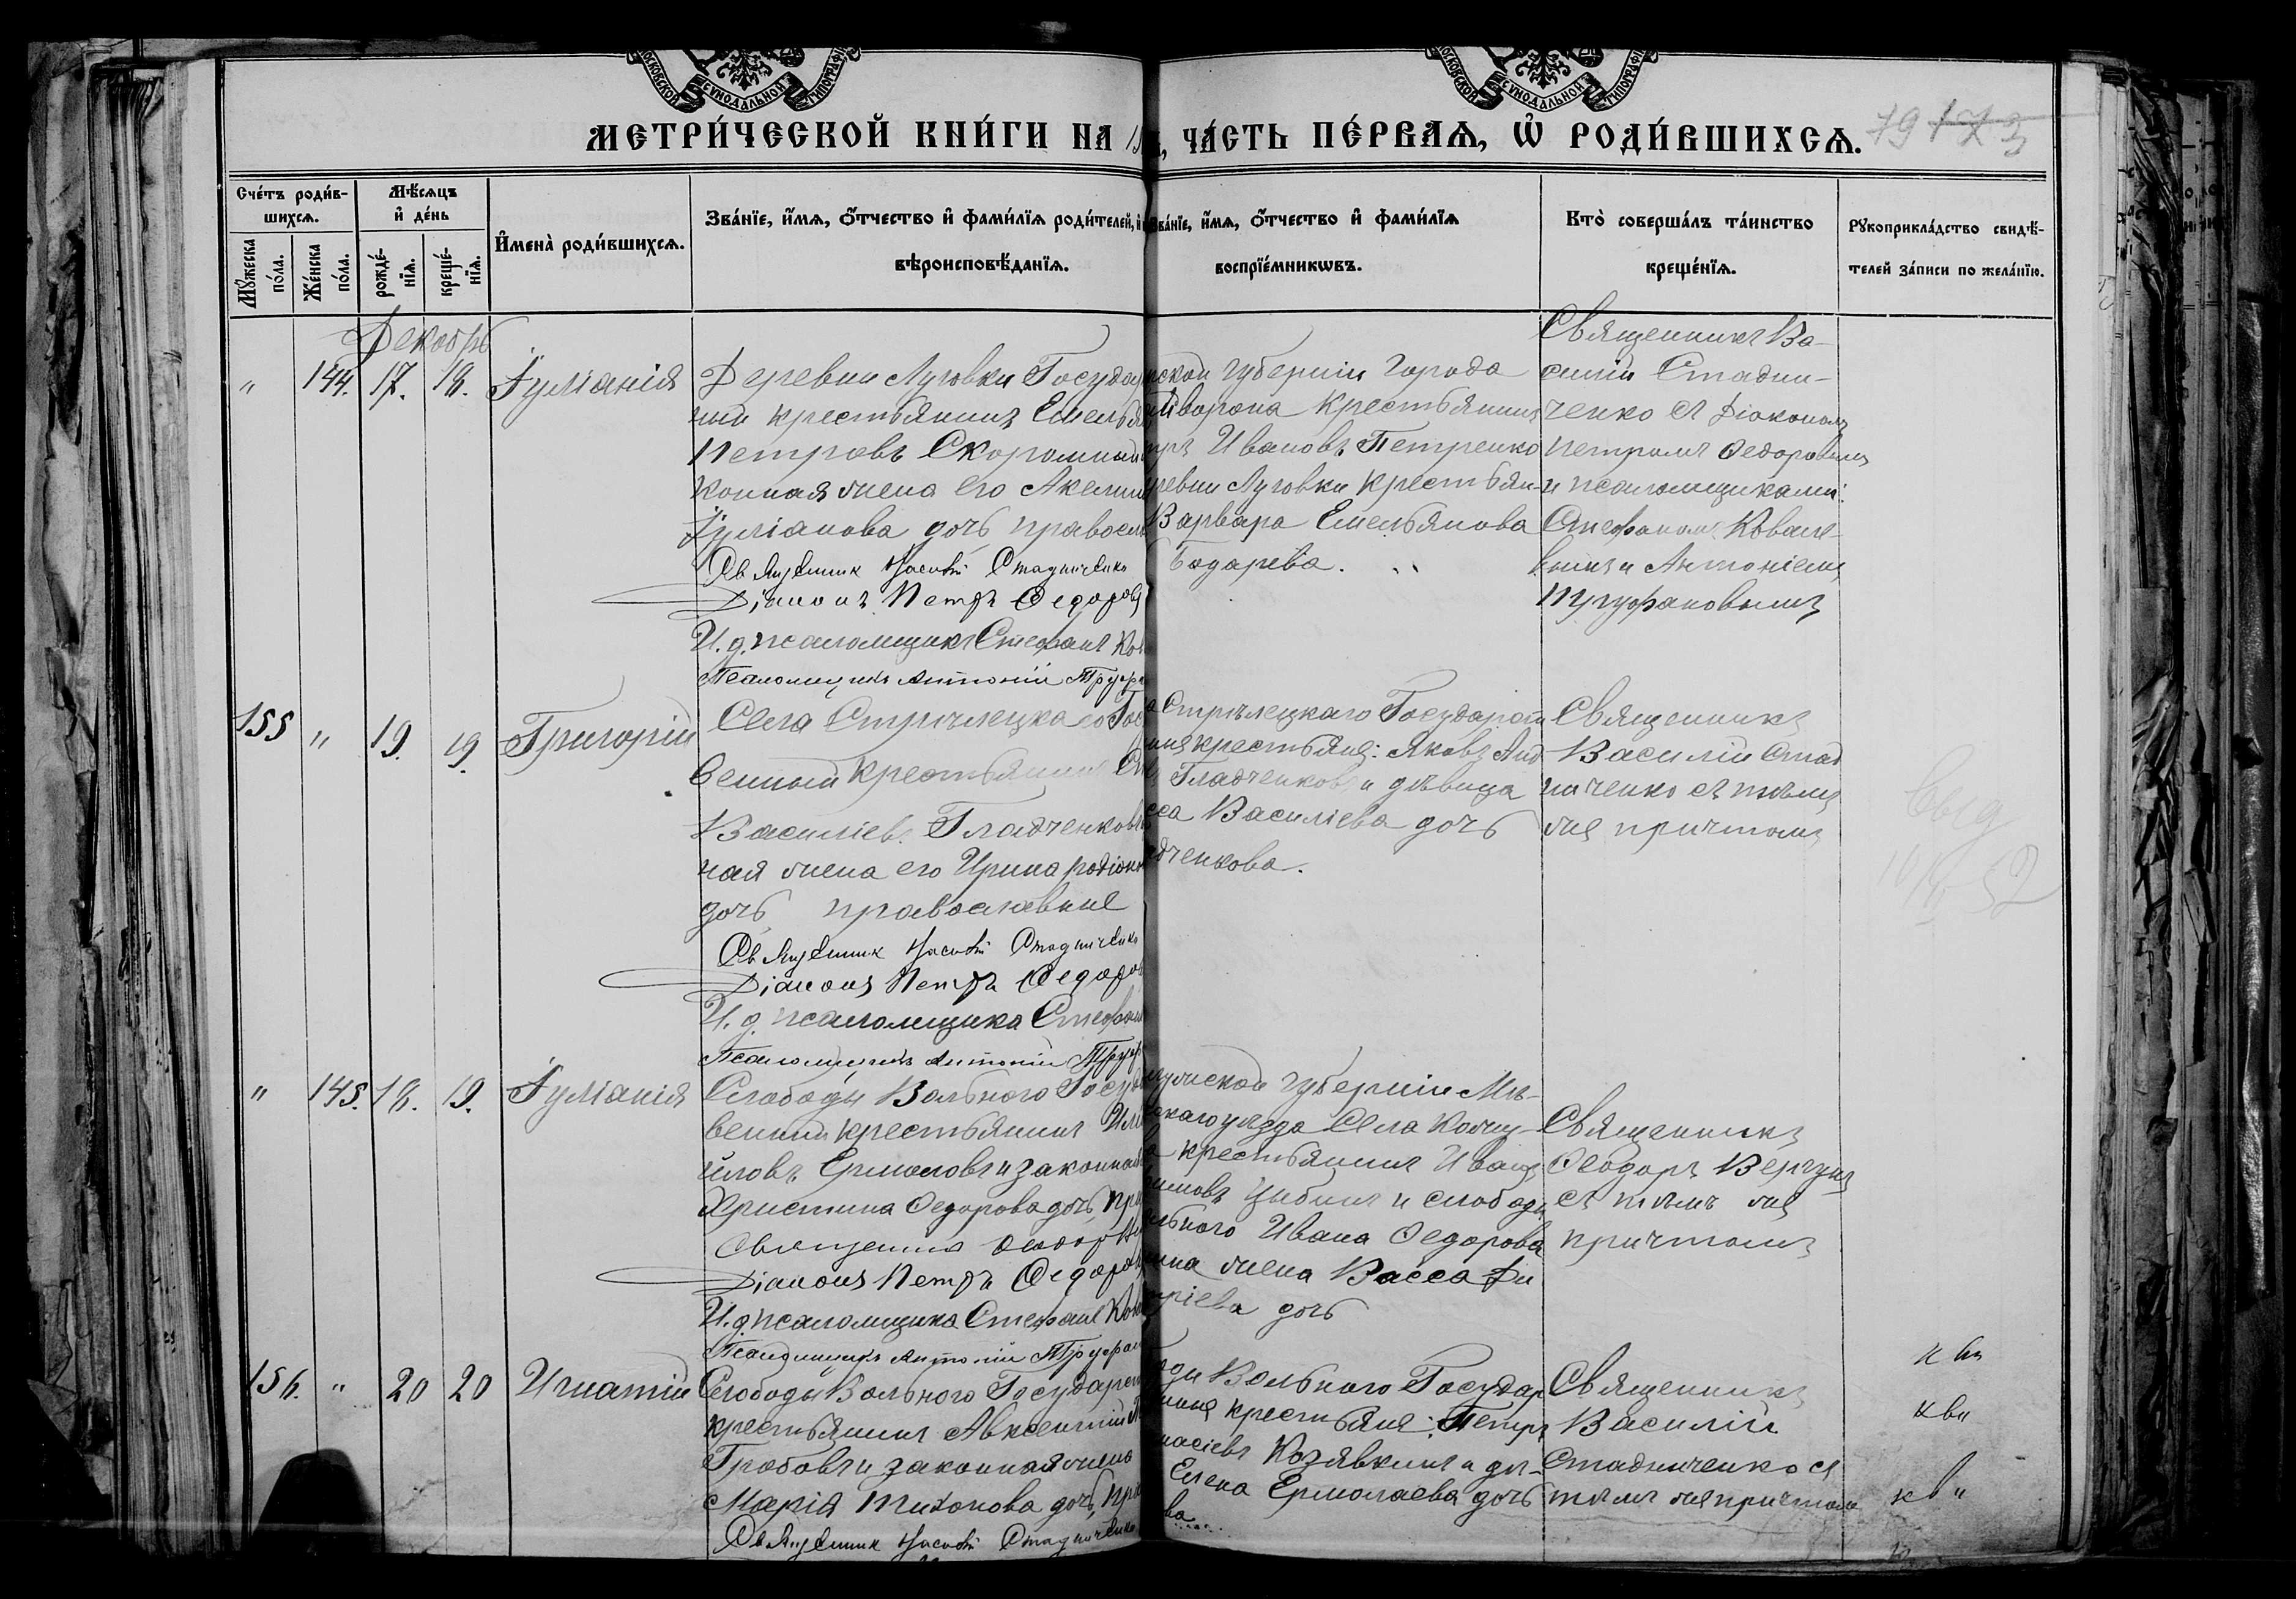 МОСКОВСКОЙ СѴНОДАЛЬНОЙ ТИПОГРАФІ
МОСКОВСКОЙ СѴНОДАЛЬНОЙ ТИПОГРАФІ
МЕТРИ́ЧЕСКОЙ КНИ́ГИ НА ЧА́СТЬ ПЕ́РВАѦ, Ѡ҆ РОДИ́ВШИХСѦ.
79 173
Сче́тъ роди́в-
шихсѧ.
Мꙋ́жеска по́ла.
Же́нска по́ла.
Мѣ́сѧцъ
и҆ де́нь
рожде́-
нїѧ.
креще́-
нїѧ.
И҆мена̀ роди́вшихсѧ.
Зва́нїе, и҆́мѧ, ѻ҆́тчество и҆ фами́лїѧ роди́телей, и҆
вѣроисповѣ́данїѧ.
Зва́нїе, и҆́мѧ, ѻ҆́тчество и҆ фами́лїѧ
воспрїе́мникѡвъ.
Кто̀ соверша́лъ та́инство
креще́нїѧ.
Рꙋкоприкла́дство свидѣ́-
телей за́писи по жела́нїю.
Декабрь
" 144. 17. 18. Іуліанія
Деревни Луговки Государ
ный крестьянинъ Емелья
Петровъ Скоромный
конная жена его Акелин
Іуліанова дочь правосл
Священник Василій Стадниченко
Діаконъ Петръ Федоров
И. д. псаломщика Стефанъ Ков
Псаломщикъ Антоній Труф
ской губерніи города
крестьянинъ
тръ Ивановъ Петренко
ревни Луговки крестьян-
Варвара Емельянова
Бодарева.
Священникъ Ва-
силій Стадни-
ченко съ діакономъ
Петромъ Федоровымъ
и псаломщиками:
Стефаномъ Ковале-
вымъ и Антоніемъ
Труфановымъ
155 " 19. 19. Григорій
Села Стрѣлецкаго Гос
венный крестьянинъ
Василіевъ Гладченковъ
ная жена его Ирина Родіон
дочь православные
Священник Василій Стадниченко
Діаконъ Петръ Федоров
И. д. псаломщика Стефан
Псаломщикъ Антоній Труф
а Стрѣлецкаго Государст
ные крестьяне: Яковъ Анд
Гладченковъ и дѣвица
сса Василіева дочь
дченкова.
Священникъ
Василій Стад
ниченко съ тѣмъ
же причтомъ
выд
" 145. 18. 19. Іуліанія
Слободы Вольного Госуда
венный крестьянинъ
иловъ Ермоловъ и законная
Христина Федорова дочь, пра
Священникъ Феодоръ
Діаконъ Петръ Федоров
И. д. псаломщика Стефанъ Ков
Псаломщикъ Антоній Труфан
губерніи Мг-
скаго уѣзда села
крестьянинъ Иванъ
имовъ Цыбинъ и слободы
льного Ивана Федорова
ина жена Васса Ди
тріева дочь
Священникъ
Феодоръ Вергунъ
съ тѣмъ же
причтомъ
156. " 20 20 Игнатій
Слободы Вольного Государст
крестьянинъ Авксентій
Гробовъ и законная жена
Марія Тихонова дочь, пра
Священник Василій Стадниченко
ды Вольного Государ
ные крестьяне: Петръ
насіевъ Козявкинъ и дѣ-
Елена Ермолаева дочь
ва
Священникъ
Василій
Стадниченко съ
тѣмъ же причтомъ